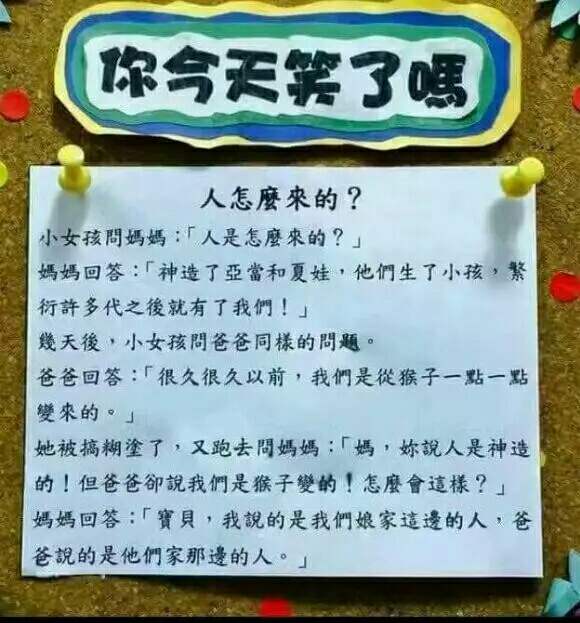 你今天笑了嗎
人怎麼來的？
小女孩問媽媽：「人是怎麼來的？」
媽媽回答：「神造了亞當和夏娃，他們生了小孩，繁
衍許多代之後就有了我們！」
幾天後，小女孩問爸爸同樣的問題。
爸爸回答：「很久很久以前，我們是從猴子一點一點
變來的。」
她被搞糊塗了，又跑去問媽媽：「媽，妳說人是神造
的！但爸爸卻說我們是猴子變的！怎麼會這樣？」
媽媽回答：「寶貝，我說的是我們娘家這邊的人，爸
爸說的是他們家那邊的人。」